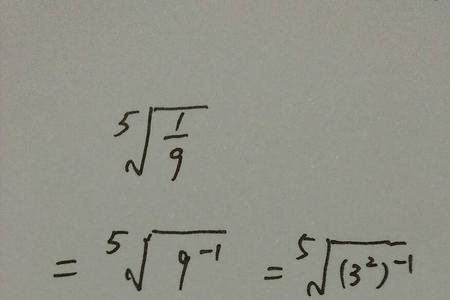 ⁵√(1/9)
= ⁵√(9⁻¹) = ⁵√((3²)⁻¹)